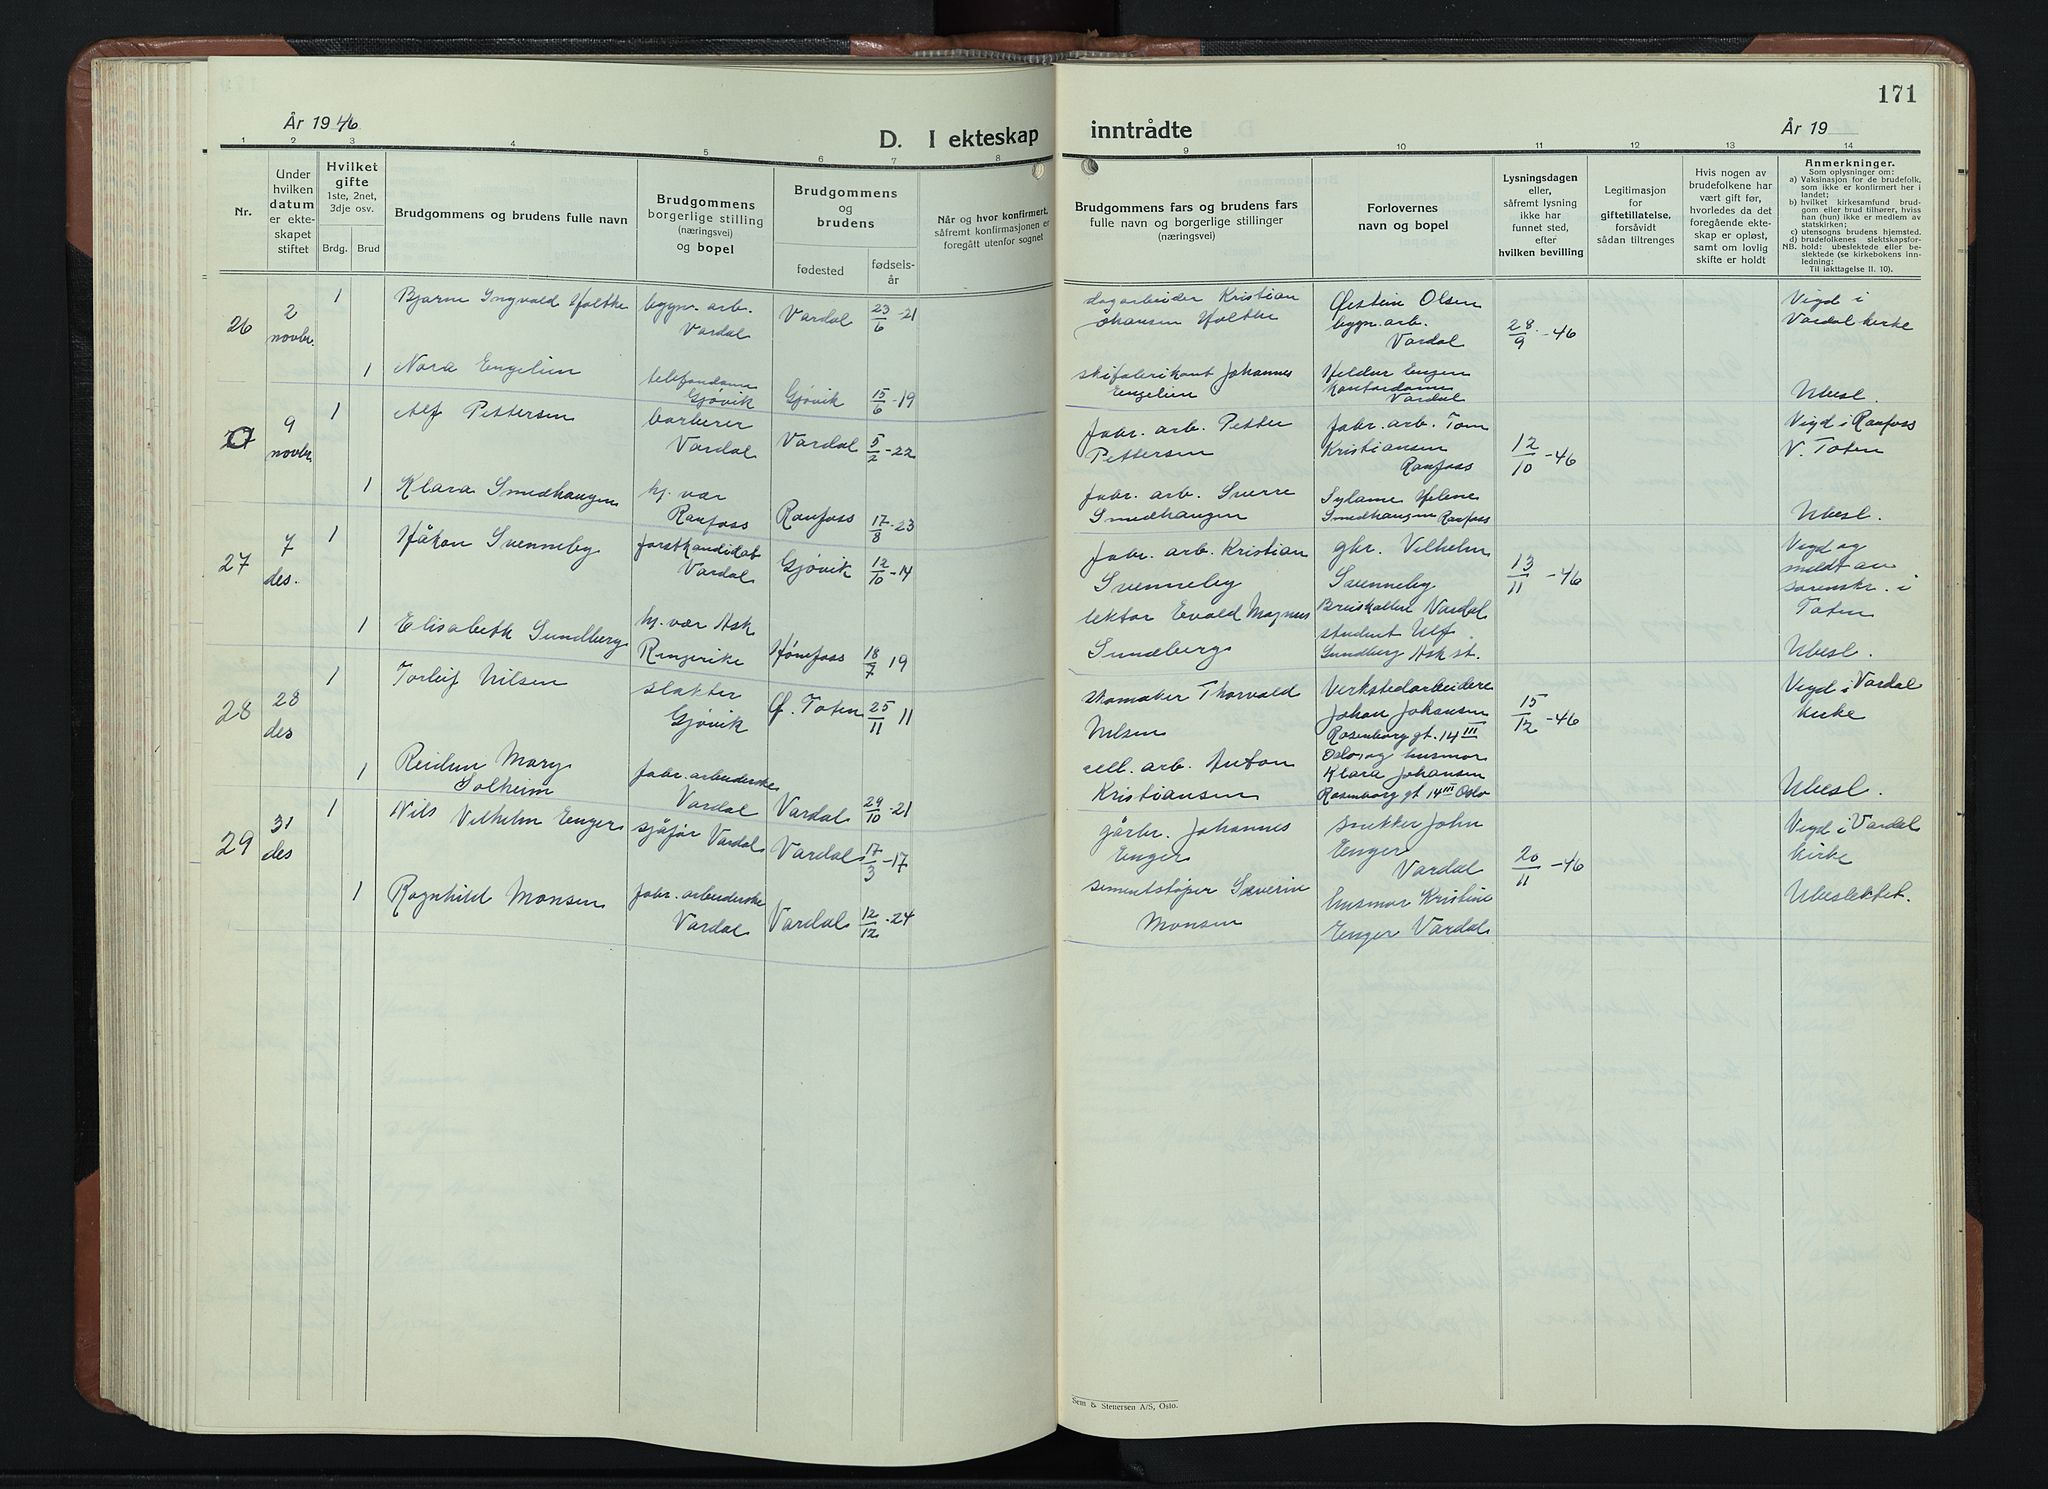 171
År 1946
D. I ekteskap
inntrådte
År 19
1 2 3 4 5 6 7 8
9 10 11 12 13 14
Nr.
Under
hvilken
datum
er ekte-
skapet
stiftet
Hvilket
gifte
1ste, 2net,
3dje osv.
Brdg. Brud
Brudgommens og brudens fulle navn
Brudgommens
borgerlige stilling
(næringsvei)
og bopel
Brudgommens
og
brudens
fødested
fødsels-
år
Når og hvor konfirmert,
såfremt konfirmasjonen er
foregått utenfor sognet
Brudgommens fars og brudens fars
fulle navn og borgerlige stillinger
(næringsvei)
Forlovernes
navn og bopel
Lysningsdagen
eller,
såfremt lysning
ikke har
funnet sted,
efter
hvilken bevilling
Legitimasjon
for
giftetillatelse,
forsåvidt
sådan tiltrenges
Hvis nogen av
brudefolkene har
vært gift før,
hvorledes da det
foregående ekte-
skap er opløst,
samt om lovlig
skifte er holdt
Anmerkninger.
Som oplysninger om:
a) Vaksinasjon for de brudefolk,
som ikke er konfirmert her i
landet;
b) hvilket kirkesamfund brud-
gom eller brud tilhører, hviss
han (hun) ikke er medlem av
statskirken;
c) utensogns brudens hjemsted.
d) brudefolkenes slektskapsfor-
NB. hold: ubeslektede eller be-
slektede (se kirkebokens inn-
ledning:
Til iakttagelse II. 10).
26
2
novbr.
1
Bjarne Ingvald Holthe
bygn. arb.
Vardal
Vardal
23/6 -21
dagarbeider Kristian
Johansen Holthe
Øistein Olsen
bygn. arb.
Vardal
28/9 -46
Vigd i
Vardal kirke
1
Nora Engelien
telefondame
Gjøvik
Gjøvik
15/6 -19
skifabrikant Johannes
Engelien
Heldur Engen
kontordame
Vardal
Ubesl.
0
9
novbr.
1
Alf Pettersen
barberer
Vardal
Vardal
5/2 -22
fabr. arb. Petter
Pettersen
fabr. arb. Tom
Kristiansen
Raufoss
12/10 -46
Vigd i Raufoss
V. Toten
1
Klara Smedhaugen
hj. vær
Raufoss
Raufoss
17/8 -23
fabr. arb. Sverre
Smedhaugen
Helene
Smedhaugen Raufoss
Ubesl.
27
7
des.
1
Håkon Svenneby
forstkandidat
Vardal
Gjøvik
12/10 -14
fabr. arb. Kristian
Svenneby
gbr. Vilhelm
Svenneby
Vardal
13/11 -46
Vigd og
meldt av
sorenskr. i
Toten
1
Elisabeth Sundberg
hj. vær Ask
Ringerike
Hønefoss
18/7 19
lektor Evald Magnus
Sundberg
student Ulf
Sundberg Ask st.
Ubesl.
28
28
des
1
Torleif Nilsen
slakter
Gjøvik
Ø. Toten
25/11 11
skomaker Thorvald
Nilsen
Verkstedarbeidere
Johan Johansen
Rosenborg gt. 14 III
15/12 -46
Vigd i Vardal
kirke
1
Reidun Mary
Solheim
fabr. arbeiderske
Vardal
Vardal
29/10 -21
cell. arb. Anton
Kristiansen
Oslo og husmor
Klara Johansen
Rosenborg gt 14 III Oslo
Ubesl.
29
31
des
1
Nils Vilhelm Enger
sjåfør Vardal
Vardal
17/3 -17
gårbr. Johannes
Enger
snekker John
Enger
Vardal
20/11 -46
Vigd i Vardal
kirke
1
Ragnhild Monsen
fabr. arbeiderske
Vardal
Vardal
12/12 -24
sementstøper Severin
Monsen
husmor Kristine
Enger Vardal
Ubeslektet.
Sem & Stenersen A/S, Oslo.